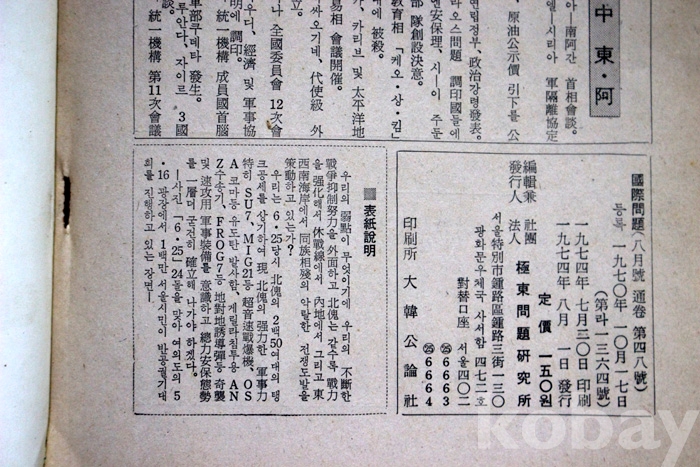 中東・阿
아—南阿간 首相會談。
엘—시리아 軍隔離協定
原油公示價 引下를 公
연립정부、政治강령發表。
라오스問題 調印國들에
언安保理、시—이 주둔
部隊創設決意。
教育相 「케오・상・김」
에 被殺。
、카리브 및 太平洋地
易相 會議開催。
싸오기네、代使級 外
立。
나、全國委員會 12次會
우디、經濟 및 軍事協
明에 調印。
統一機構 成員國首腦
軍部쿠데타 發生。
루안다、자이르 3國
談。
統一機構 第11次會議
國際問題 (八月號 通卷 第四八號)
등록 一九七〇年 一〇月一七日
(第라一三六四號)
一九七四年 七月三〇日 印刷
一九七四年 八月 一日 發行
定價 一五〇원
編輯兼 社團
發行人 法人 極東問題硏究所
서울特別市鍾路區鍾路三街一三〇
광화문우체국 사서함 四七二호
對替口座 서울四〇二
㉕6663
㉕6664
印刷所 大韓公論社
■ 表紙說明
우리의 弱點이 무엇이기에 우리의 不斷한
戰爭抑制努力을 外面하고 北傀는 갈수록 戰力
을 強化해서 休戰線에서 內地에서 그리고 東
西南海岸에서 同族相殘의 악랄한 전쟁도발을
策動하고 있는가?
우리는 6・25당시 北傀의 2백50여대의 탱
크공세를 상기하며 現 北傀의 强力한 軍事力
特히 SU7、MIG21등 超音速戰爆機、OS
A 코마등 유도탄 발사함、게릴라침투용 AN
Z수송기、FROG7등 地對地誘導彈등 奇襲
및 速攻用 軍事裝備를 意識하고 總力安保態勢
를 一層더 굳건히 確立해 나가야 하겠다。
—사진 「6・25」 24돌을 맞아 여의도의 5
・16 광장에서 1백만 서울시민이 반공궐기대
회를 진행하고 있는 장면—
kobay